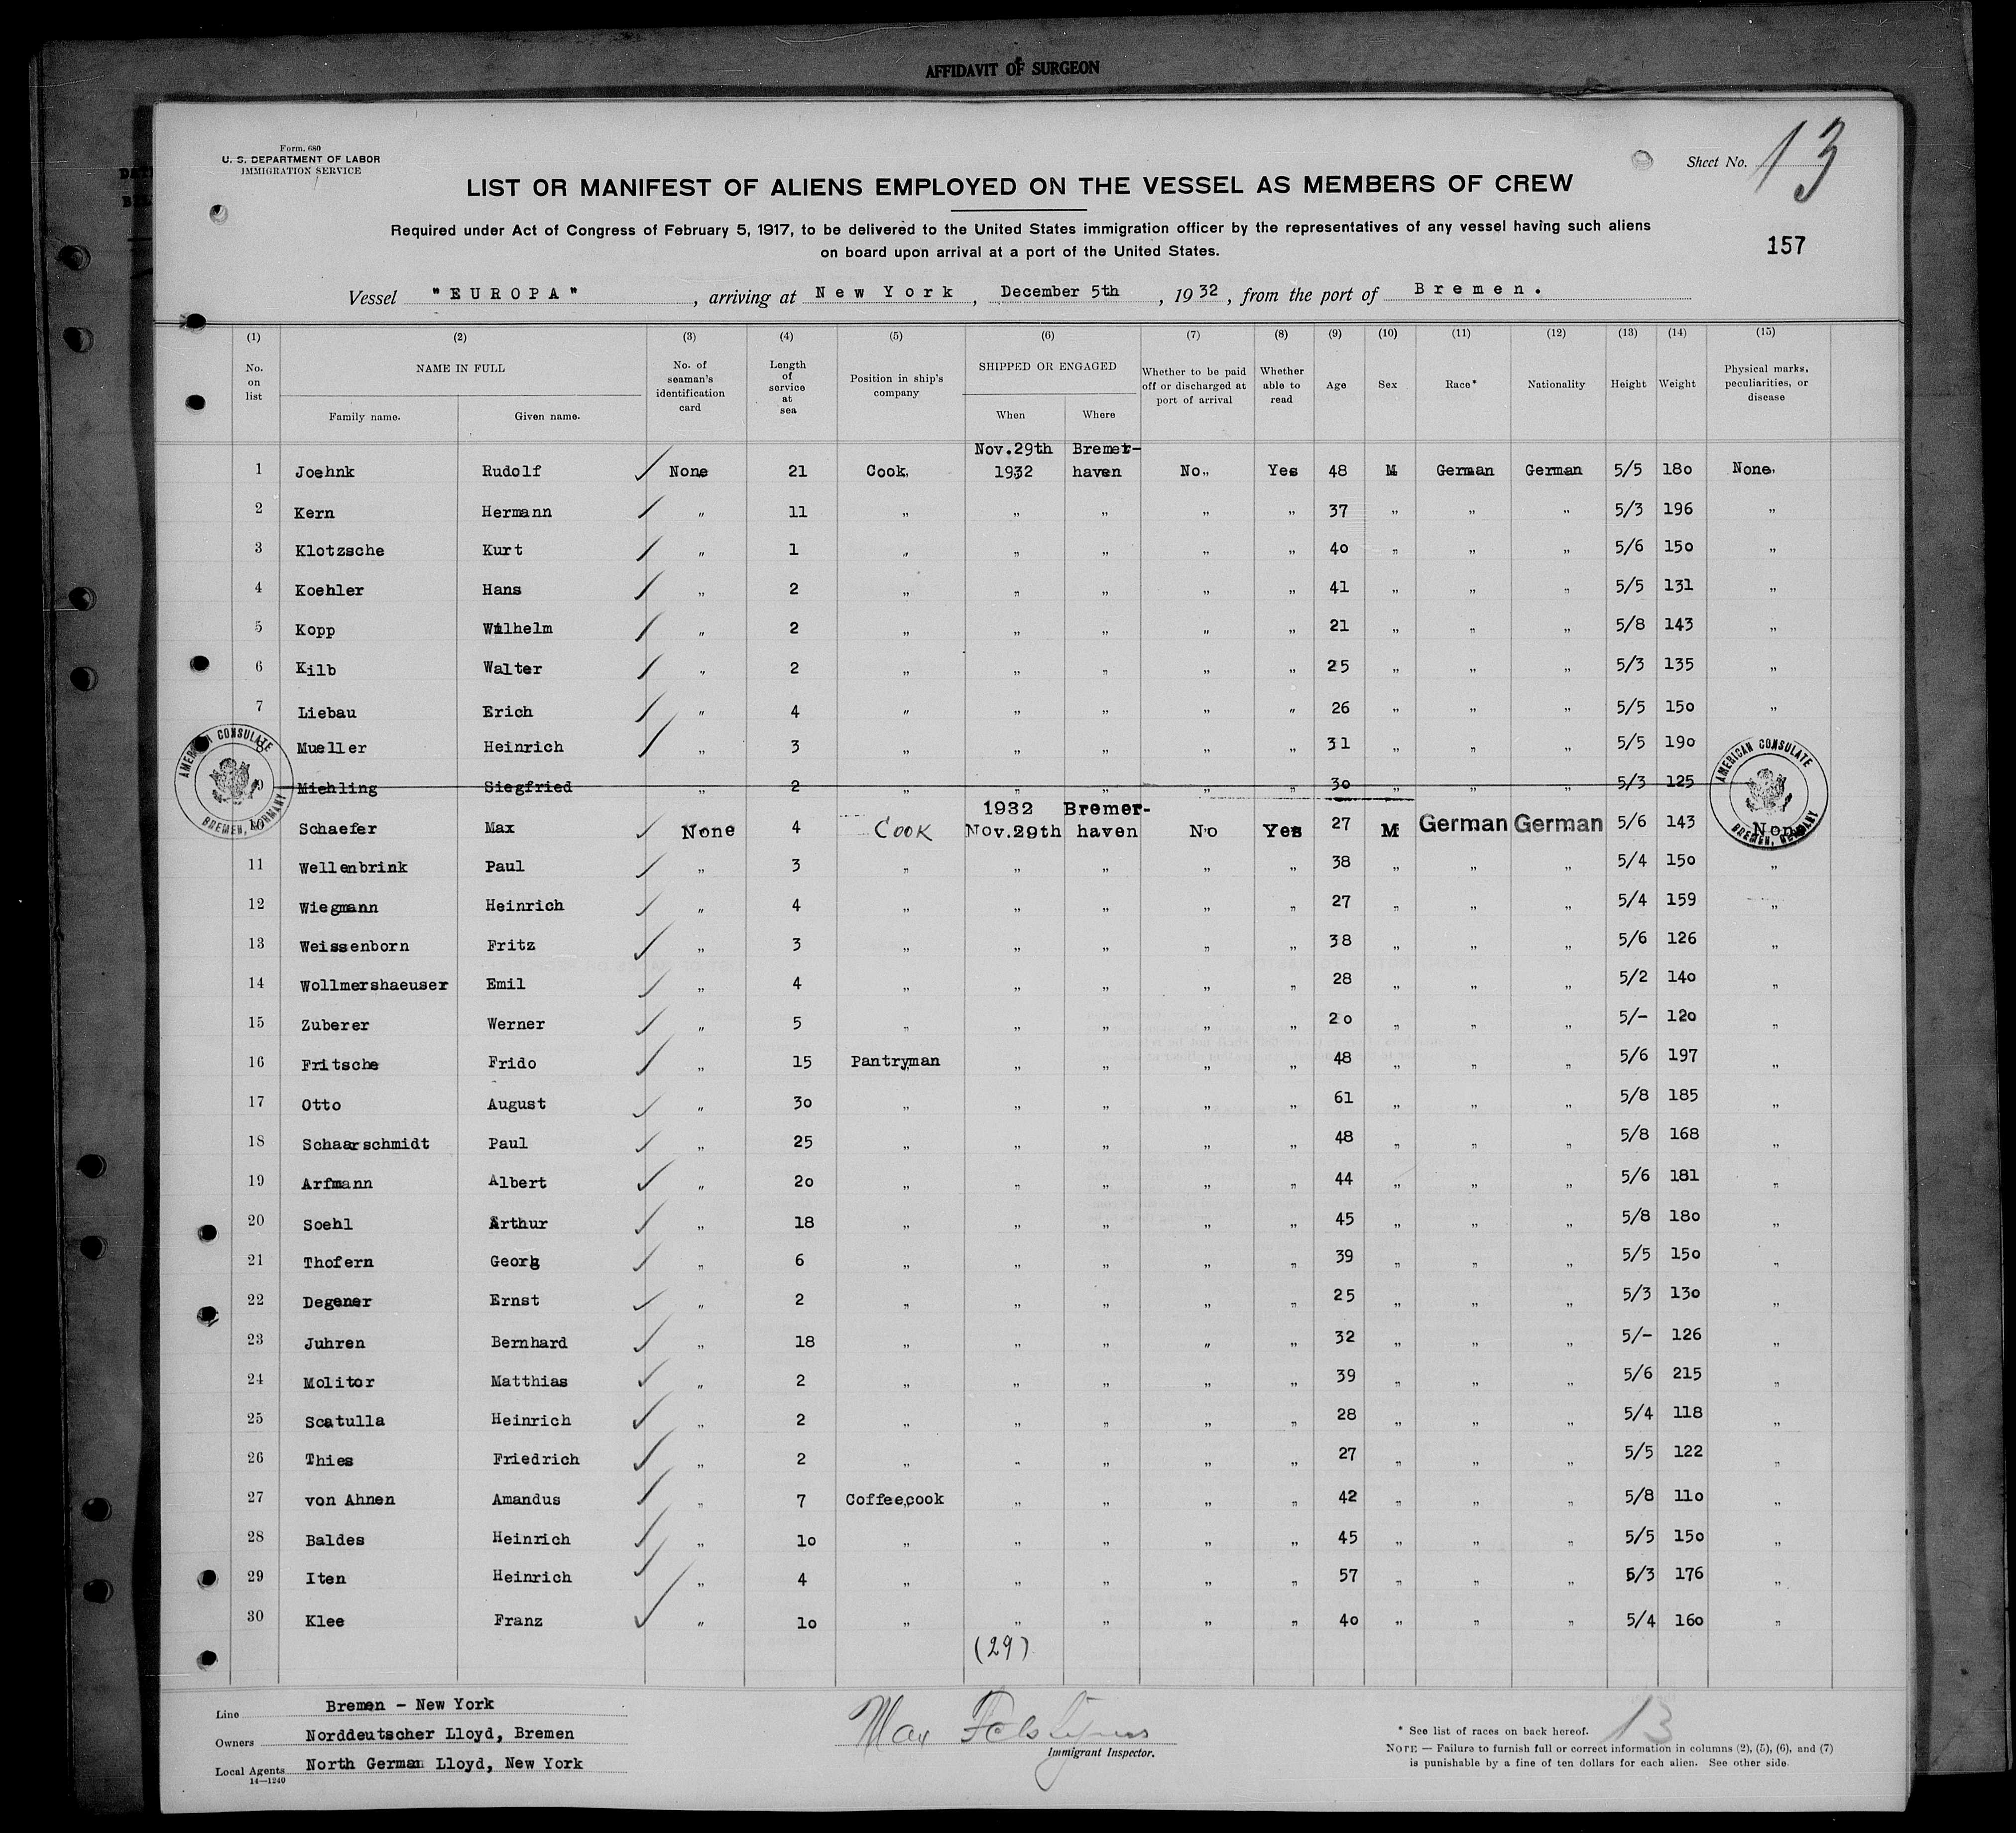 AFFIDAVIT OF SURGEON
Form. 680
U. S. DEPARTMENT OF LABOR
IMMIGRATION SERVICE
Sheet No. 13
LIST OR MANIFEST OF ALIENS EMPLOYED ON THE VESSEL AS MEMBERS OF CREW
Required under Act of Congress of February 5, 1917, to be delivered to the United States immigration officer by the representatives of any vessel having such aliens
on board upon arrival at a port of the United States.
157
Vessel "EUROPA", arriving at New York, December 5th, 1932, from the port of Bremen.
(1) (2) (3) (4) (5) (6) (7) (8) (9) (10) (11) (12) (13) (14) (15)
No. on list NAME IN FULL Family name. Given name. No. of seaman's identification card Length of service at sea Position in ship's company SHIPPED OR ENGAGED When Where Whether to be paid off or discharged at port of arrival Whether able to read Age Sex Race* Nationality Height Weight Physical marks, peculiarities, or disease
Nov.29th Bremer-
1 Joehnk Rudolf None 21 Cook 1932 haven No Yes 48 M German German 5/5 180 None
2 Kern Hermann „ 11 „ „ „ „ „ 37 „ „ „ 5/3 196 „
3 Klotzsche Kurt „ 1 „ „ „ „ „ 40 „ „ „ 5/6 150 „
4 Koehler Hans „ 2 „ „ „ „ „ 41 „ „ „ 5/5 131 „
5 Kopp Wilhelm „ 2 „ „ „ „ „ 21 „ „ „ 5/8 143 „
6 Kilb Walter „ 2 „ „ „ „ „ 25 „ „ „ 5/3 135 „
7 Liebau Erich „ 4 „ „ „ „ „ 26 „ „ „ 5/5 150 „
8 Mueller Heinrich „ 3 „ „ „ „ „ 31 „ „ „ 5/5 190 „
9 Miehling Siegfried „ 2 „ „ „ „ „ 30 „ „ „ 5/3 125
AMERICAN CONSULATE BREMEN, GERMANY
AMERICAN CONSULATE BREMEN, GERMANY
1932 Bremer-
10 Schaefer Max None 4 Cook Nov.29th haven No Yes 27 M German German 5/6 143 None
11 Wellenbrink Paul „ 3 „ „ „ „ „ 38 „ „ „ 5/4 150 „
12 Wiegmann Heinrich „ 4 „ „ „ „ „ 27 „ „ „ 5/4 159 „
13 Weissenborn Fritz „ 3 „ „ „ „ „ 38 „ „ „ 5/6 126 „
14 Wollmershaeuser Emil „ 4 „ „ „ „ „ 28 „ „ „ 5/2 140 „
15 Zuberer Werner „ 5 „ „ „ „ „ 20 „ „ „ 5/- 120 „
16 Fritsche Frido „ 15 Pantryman „ „ „ „ 48 „ „ „ 5/6 197 „
17 Otto August „ 30 „ „ „ „ „ 61 „ „ „ 5/8 185 „
18 Schaarschmidt Paul „ 25 „ „ „ „ „ 48 „ „ „ 5/8 168 „
19 Arfmann Albert „ 20 „ „ „ „ „ 44 „ „ „ 5/6 181 „
20 Soehl Arthur „ 18 „ „ „ „ „ 45 „ „ „ 5/8 180 „
21 Thofern Georg „ 6 „ „ „ „ „ 39 „ „ „ 5/5 150 „
22 Degener Ernst „ 2 „ „ „ „ „ 25 „ „ „ 5/3 130 „
23 Juhren Bernhard „ 18 „ „ „ „ „ 32 „ „ „ 5/- 126 „
24 Molitor Matthias „ 2 „ „ „ „ „ 39 „ „ „ 5/6 215 „
25 Scatulla Heinrich „ 2 „ „ „ „ „ 28 „ „ „ 5/4 118 „
26 Thies Friedrich „ 2 „ „ „ „ „ 27 „ „ „ 5/5 122 „
27 von Ahnen Amandus „ 7 Coffeecook „ „ „ „ 42 „ „ „ 5/8 110 „
28 Baldes Heinrich „ 10 „ „ „ „ „ 45 „ „ „ 5/5 150 „
29 Iten Heinrich „ 4 „ „ „ „ „ 57 „ „ „ 5/3 176 „
30 Klee Franz „ 10 „ „ „ „ „ 40 „ „ „ 5/4 160 „
(29)
Line Bremen - New York
Owners Norddeutscher Lloyd, Bremen
Local Agents North German Lloyd, New York
14—1240
Max
Immigrant Inspector.
13
* See list of races on back hereof.
NOTE — Failure to furnish full or correct information in columns (2), (5), (6), and (7)
is punishable by a fine of ten dollars for each alien. See other side.